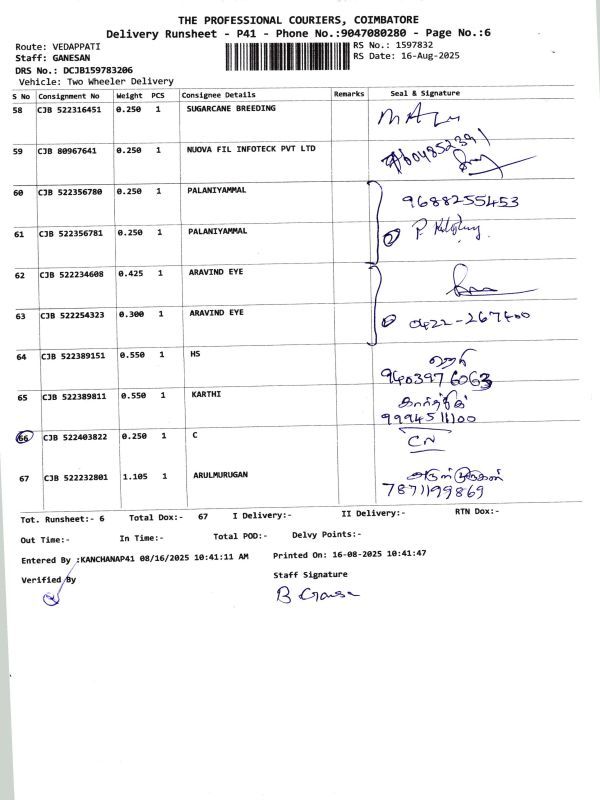 THE PROFESSIONAL COURIERS, COIMBATORE
Delivery Runsheet - P41 - Phone No.:9047080280 - Page No.:6
Route: VEDAPPATI
RS No.: 1597832
Staff: GANESAN
RS Date: 16-Aug-2025
DRS No.: DCJB159783206
Vehicle: Two Wheeler Delivery
S No Consignment No Weight PCS Consignee Details Remarks Seal & Signature
58 CJB 522316451 0.250 1 SUGARCANE BREEDING
59 CJB 80967641 0.250 1 NUOVA FIL INFOTECK PVT LTD
60 CJB 522356780 0.250 1 PALANIYAMMAL 9688255453
61 CJB 522356781 0.250 1 PALANIYAMMAL
62 CJB 522234608 0.425 1 ARAVIND EYE
63 CJB 522254323 0.300 1 ARAVIND EYE 0422-267400
64 CJB 522389151 0.550 1 HS
9403976063
65 CJB 522389811 0.550 1 KARTHI கார்த்திக்
9994511100
66 CJB 522403822 0.250 1 C CN
67 CJB 522232801 1.105 1 ARULMURUGAN அருள்முருகன்
7871199869
Tot. Runsheet:- 6 Total Dox:- 67 I Delivery:- II Delivery:- RTN Dox:-
Out Time:- In Time:- Total POD:- Delvy Points:-
Entered By :KANCHANAP41 08/16/2025 10:41:11 AM Printed On: 16-08-2025 10:41:47
Verified By Staff Signature